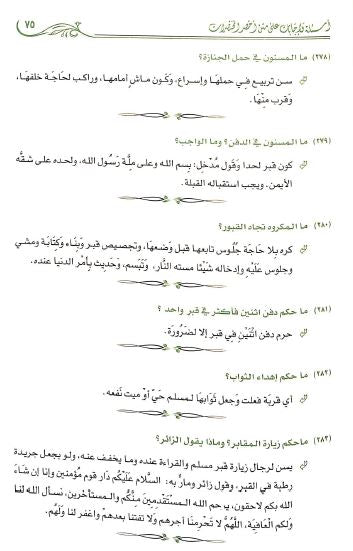 أسئلة وإجابات على متن أخصر المختصرات
٧٥
(٢٧٨) ما المسنون في حمل الجنازة؟
سن تربيع في حملها وإسراع، وكون ماش أمامها، وراكب لحاجة خلفها،
وقرب منها.
(٢٧٩) ما المسنون في الدفن؟ وما الواجب؟
كون قبر لحدا وقول مدخل: بسم الله وعلى ملة رسول الله، ولحده على شقه
الأيمن، ويجب استقباله القبلة.
(٢٨٠) ما المكروه تجاه القبور؟
كره بلا حاجة جلوس تابعها قبل وضعها، وتجصيص قبر وبناء وكتابة ومشي
وجلوس عليه وإدخاله شيئا مسته النار، وتبسم، وحديث بأمر الدنيا عنده.
(٢٨١) ما حكم دفن اثنين فأكثر في قبر واحد ؟
حرم دفن اثنين في قبر إلا لضرورة.
(٢٨٢) ما حكم إهداء الثواب؟
أي قربة فعلت وجعل ثوابها لمسلم حي أو ميت نفعه.
(٢٨٣) ما حكم زيارة المقابر؟ وماذا يقول الزائر؟
يسن لرجال زيارة قبر مسلم والقراءة عنده وما يخفف عنه، ولو بجعل جريدة
رطبة في القبر، وقول زائر ومار به: السلام عليكم دار قوم مؤمنين وإنا إن شاء
الله بكم لاحقون، يرحم الله المستقدمين منكم والمستأخرين، نسأل الله لنا
ولكم العافية، اللهم لا تحرمنا أجرهم ولا تفتنا بعدهم واغفر لنا ولهم.